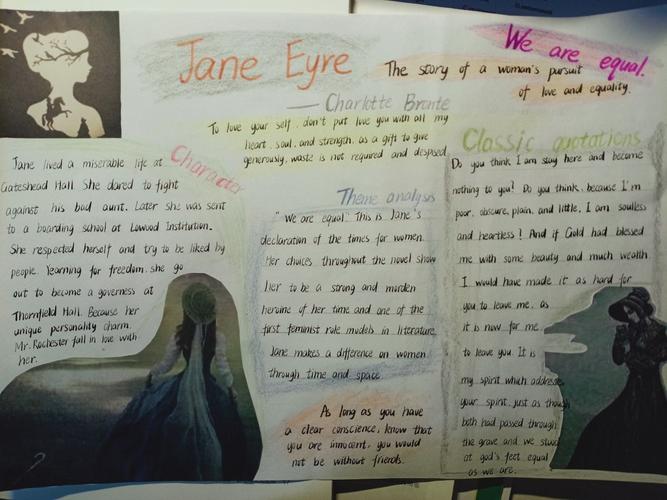 Jane Eyre
— Charlotte Bronte
We are equal.
The story of a woman's pursuit
of love and equality.
To love your self, don't put love you with all my
heart, soul, and strength, as a gift to give
generously, waste is not required and despised
Character
Jane lived a miserable life at
Gateshead Hall. She dared to fight
against his bad aunt. Later she was sent
to a boarding school at Lowood Institution.
She respected herself and try to be liked by
people. Yearning for freedom, she go
out to become a governess at
Thornfield Hall. Because her
unique personality charm.
Mr. Rochester fall in love with
her.
Theme analysis
"We are equal" This is Jane's
declaration of the times for women.
Her choices throughout the novel show
her to be a strong and
heroine of her time and one of the
first feminist role models in literature
Jane makes a difference on women
through time and space
As long as you have
a clear conscience, know that
you are innocent, you would
not be without friends.
Classic quotations
Do you think I am stay here and become
nothing to you? Do you think, because I'm
poor, obscure, plain, and little, I am soulless
and heartless! And if God had blessed
me with some beauty and much wealth
I would have made it as hard for
you to leave me, as
it is now for me
to leave you. It is
my spirit which
your spirit, just as though
both had passed through
the grave and we stood
at god's feet equal
as we are.